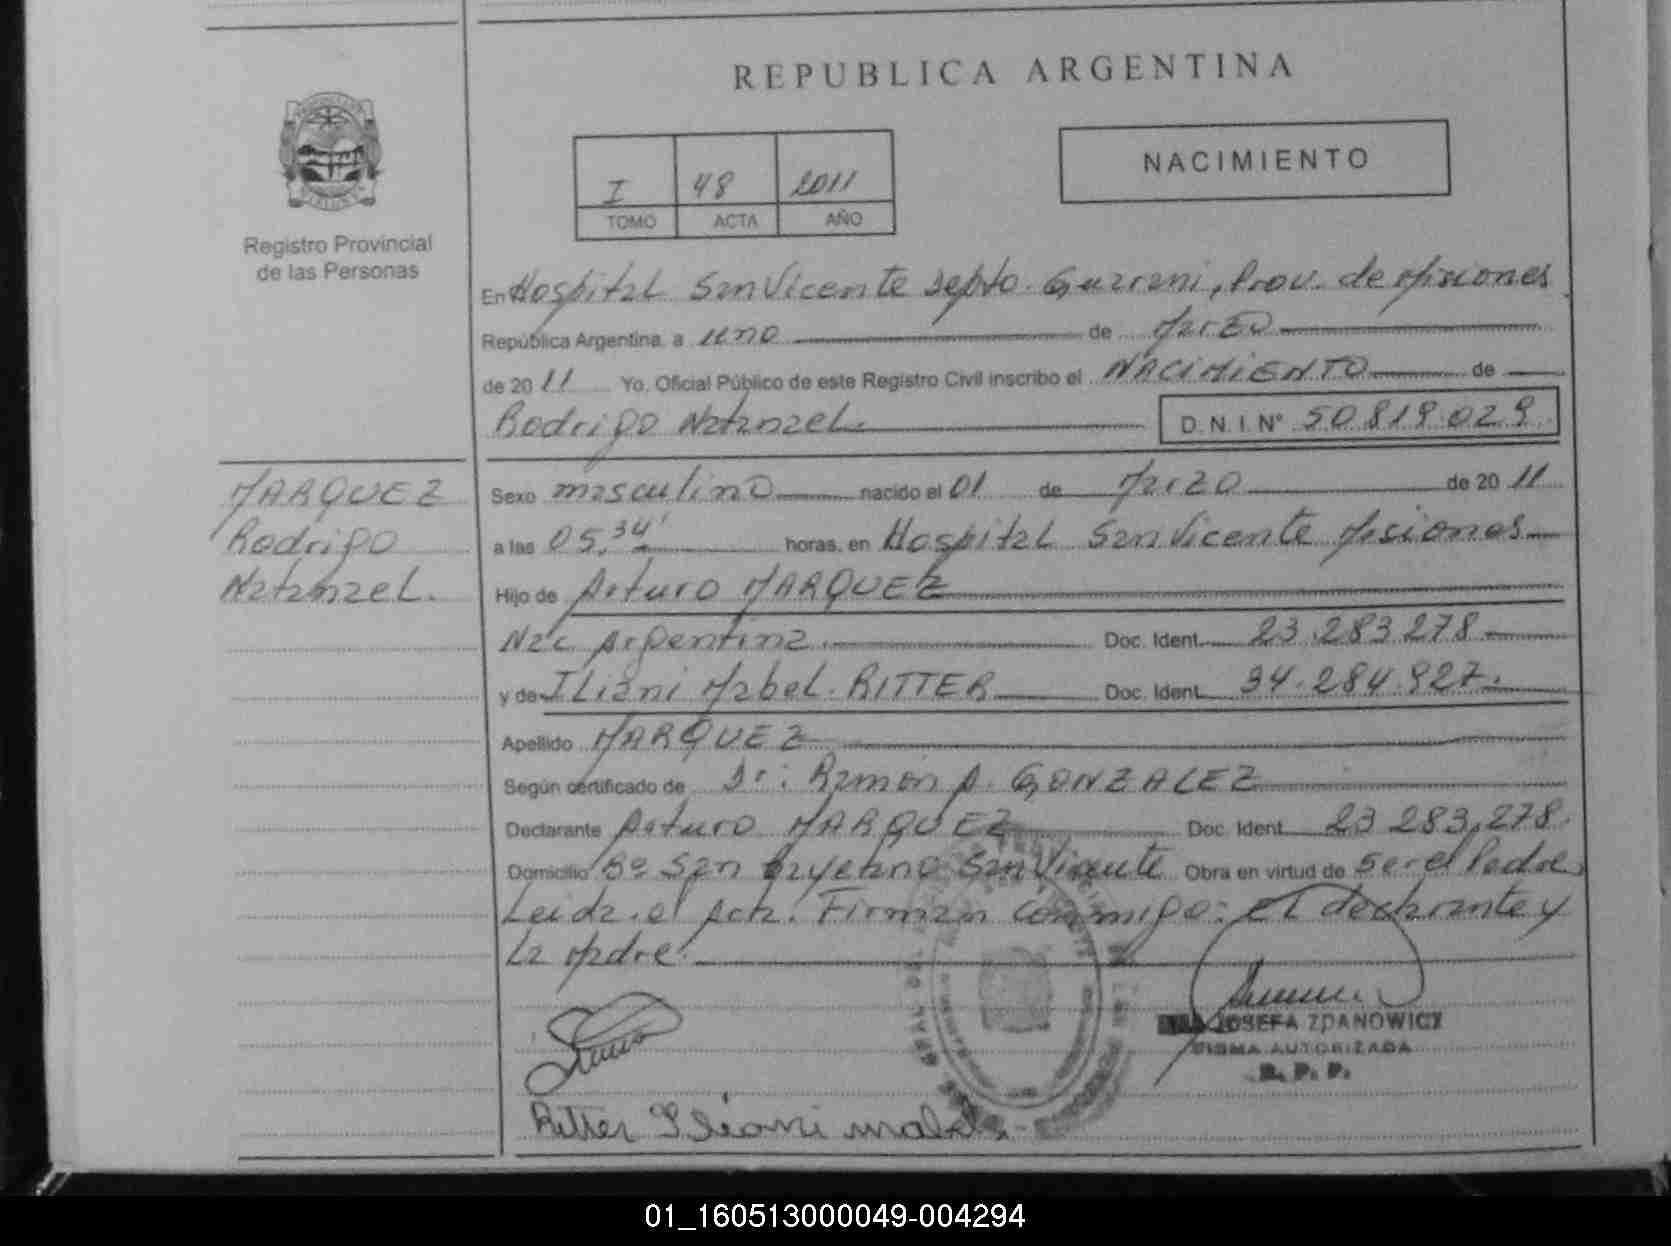 REPUBLICA ARGENTINA
NACIMIENTO
I 48 2011
TOMO ACTA AÑO
Registro Provincial
de las Personas
En Hospital San Vicente Depto. Guarani, Prov. de Misiones
República Argentina, a uno de Marzo
de 2011 Yo, Oficial Público de este Registro Civil inscribo el NACIMIENTO de
Rodrigo Natanael. D. N. I. Nº 50.819.029
MARQUEZ
Rodrigo
Natanael.
Sexo masculino nacido el 01 de Marzo de 2011
a las 05,34' horas, en Hospital San Vicente Misiones
Hijo de Arturo MARQUEZ
Nac. Argentina. Doc. Ident. 23.283.278
y de Iliani Mabel. RITTER Doc. Ident. 34.284.927.
Apellido MARQUEZ
Según certificado de Dr: Ramón A. GONZALEZ
Declarante Arturo MARQUEZ Doc. Ident. 23.283.278.
Domicilio Bº San Cayetano San Vicente Obra en virtud de Ser el Padre
Leida el Acta. Firman conmigo: el declarante y
La Madre.
JOSEFA ZDANOWICZ
FIRMA AUTORIZADA
R. P. P.
Ritter Iliani
01_160513000049-004294